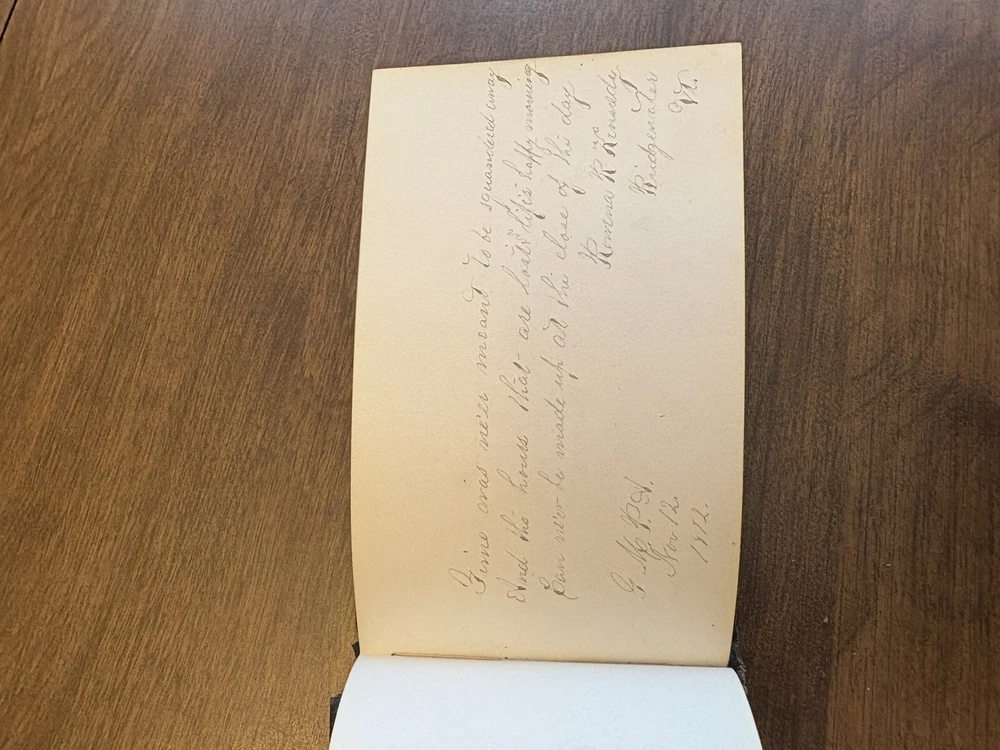 Time was ne'er meant to be squandered away
And the hours that are lost in life's happy morning
Can ne'er be made up at the close of the day
Romina R Kennedy
Bridgewater
Vt.
G. M. P. A.
Nov 12.
1882.